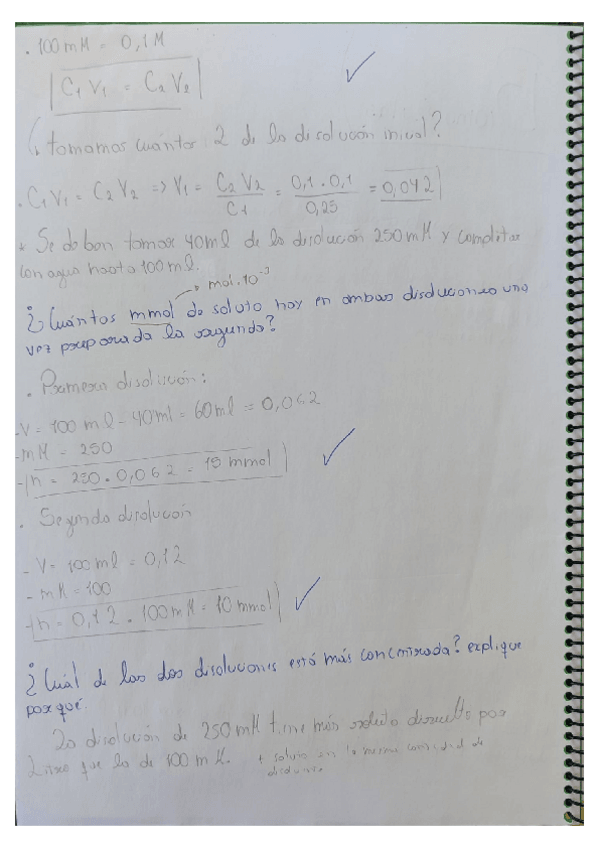 . 100 mM = 0,1 M
C₁ V₁ = C₂ V₂
tomamos cuántos L de la disolución inicial?
. C₁V₁ = C₂V₂ => V₁ = C₂V₂ / C₁ = 0,1 · 0,1 / 0,25 = 0,04 L
Se deben tomar 40ml de la disolución 250 mM y completar
con agua hasta 100 ml.
mol·10⁻³
¿Cuántos mmol de soluto hay en ambas disoluciones una
vez preparada la segunda?
. Primera disolución:
- V = 100 ml - 40ml = 60ml = 0,06L
- mM = 250
- n = 250 · 0,06L = 15 mmol
. Segunda disolución
- V = 100ml = 0,1L
- mM = 100
- n = 0,1L · 100mM = 10 mmol
¿Cuál de las dos disoluciones está más concentrada? explique
por qué.
La disolución de 250 mM tiene más soluto disuelto por
que la de 100 mM. + soluto en la misma cantidad de